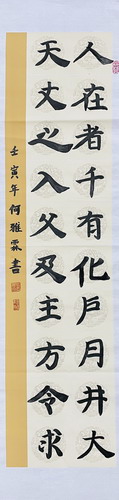 人在者千有化戶月井大
天丈之入父及主方令求
壬寅年何雅霖書